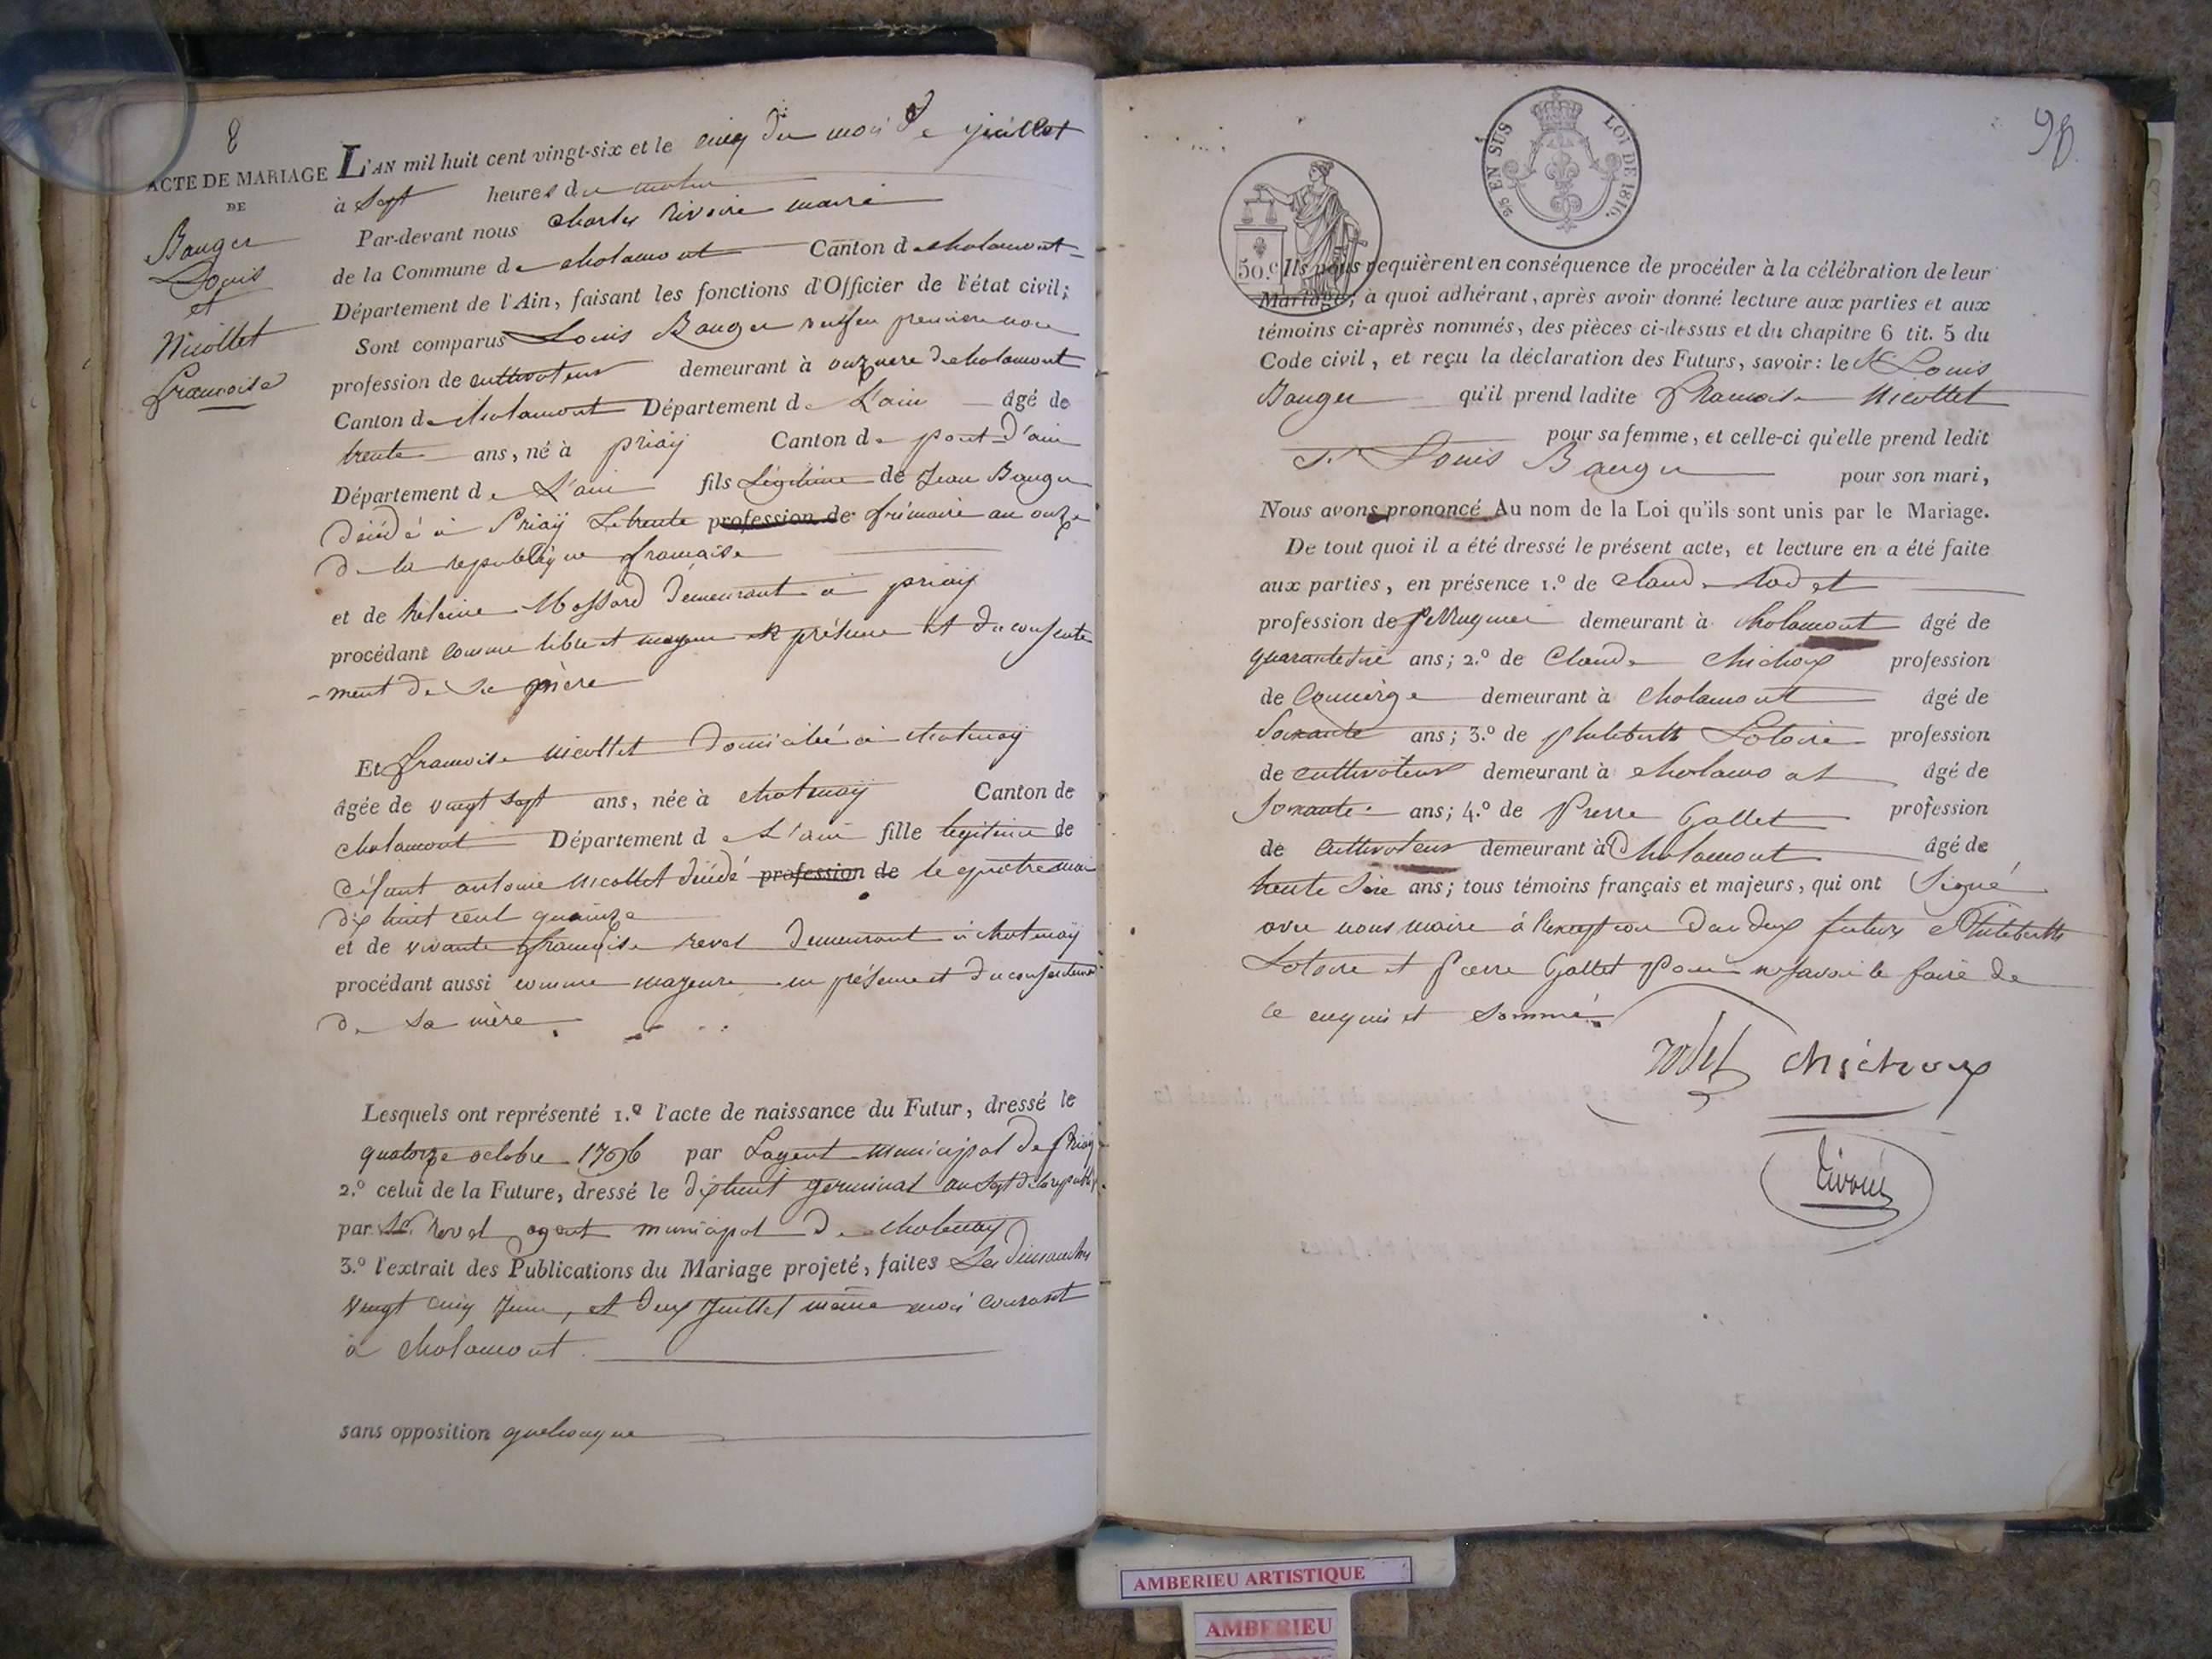 8
ACTE DE MARIAGE
DE
Bauger
Louis
et
Nicollet
francoise
L'AN mil huit cent vingt-six et le cinq du mois de juillet
à Sept heures du matin
Par-devant nous charles Rivoire maire
de la Commune de cholamont Canton de cholamont
Département de l'Ain, faisant les fonctions d'Officier de l'état civil;
Sont comparus Louis Bauger premiere
profession de cultivateur demeurant à de cholamont
Canton de cholamont Département de L'ain âgé de
trente ans, né à priaÿ Canton de pont-d'ain
Département de L'ain fils Légitime de Jean Bauger
décédé à Priaÿ Le trente profession de frimaire an onze
de la republique francaise
et de heleine Mossard demeurant à priaÿ
procédant comme libre et majeur en présence et du consente
-ment de sa mère
Et francoise Nicollet domiciliée à chatenaÿ
âgée de vingt sept ans, née à chatenaÿ Canton de
cholamont Département de L'ain fille legitime de
défunt antoine Nicollet décédé profession de le quatre mai
dix huit cent quainze
et de vivante francoise revel demeurant à chatenaÿ
procédant aussi comme majeure en présence et du consentement
de sa mère
Lesquels ont représenté 1.º l'acte de naissance du Futur, dressé le
quatorze octobre 1796 par Lagent municipal de Priaÿ
2.º celui de la Future, dressé le dix huit germinal an sept de la republ
par Sr. revel agent municipal de chatenaÿ
3.º l'extrait des Publications du Mariage projeté, faites Les dimanches
vingt cinq juin, et deux juillet même mois courant
à cholamont
sans opposition quelconque
98
25 EN SUS LOI DE 1816.
50.c
Ils nous requièrent en conséquence de procéder à la célébration de leur
Mariage; à quoi adhérant, après avoir donné lecture aux parties et aux
témoins ci-après nommés, des pièces ci-dessus et du chapitre 6 tit. 5 du
Code civil, et reçu la déclaration des Futurs, savoir: le Sr Louis
Bauger qu'il prend ladite francoise Nicollet
pour sa femme, et celle-ci qu'elle prend ledit
Sr Louis Bauger pour son mari,
Nous avons prononcé Au nom de la Loi qu'ils sont unis par le Mariage.
De tout quoi il a été dressé le présent acte, et lecture en a été faite
aux parties, en présence 1.º de Claude Rodet
profession de perruquier demeurant à cholamont âgé de
quarante six ans; 2.º de Claude chichoux profession
de Concierge demeurant à cholamont âgé de
Soixante ans; 3.º de philiberth Lotoire profession
de cultivateur demeurant à cholamont âgé de
Soixante ans; 4.º de Pierre Gallet profession
de cultivateur demeurant à Cholamont âgé de
trente Six ans; tous témoins français et majeurs, qui ont Signé
avec nous maire à l'exception des deux futurs Philiberth
Lotoire et pierre Gallet pour ne savoir le faire de
ce enquis et sommé
rodet chichoux
rivoire
AMBERIEU ARTISTIQUE
AMBERIEU